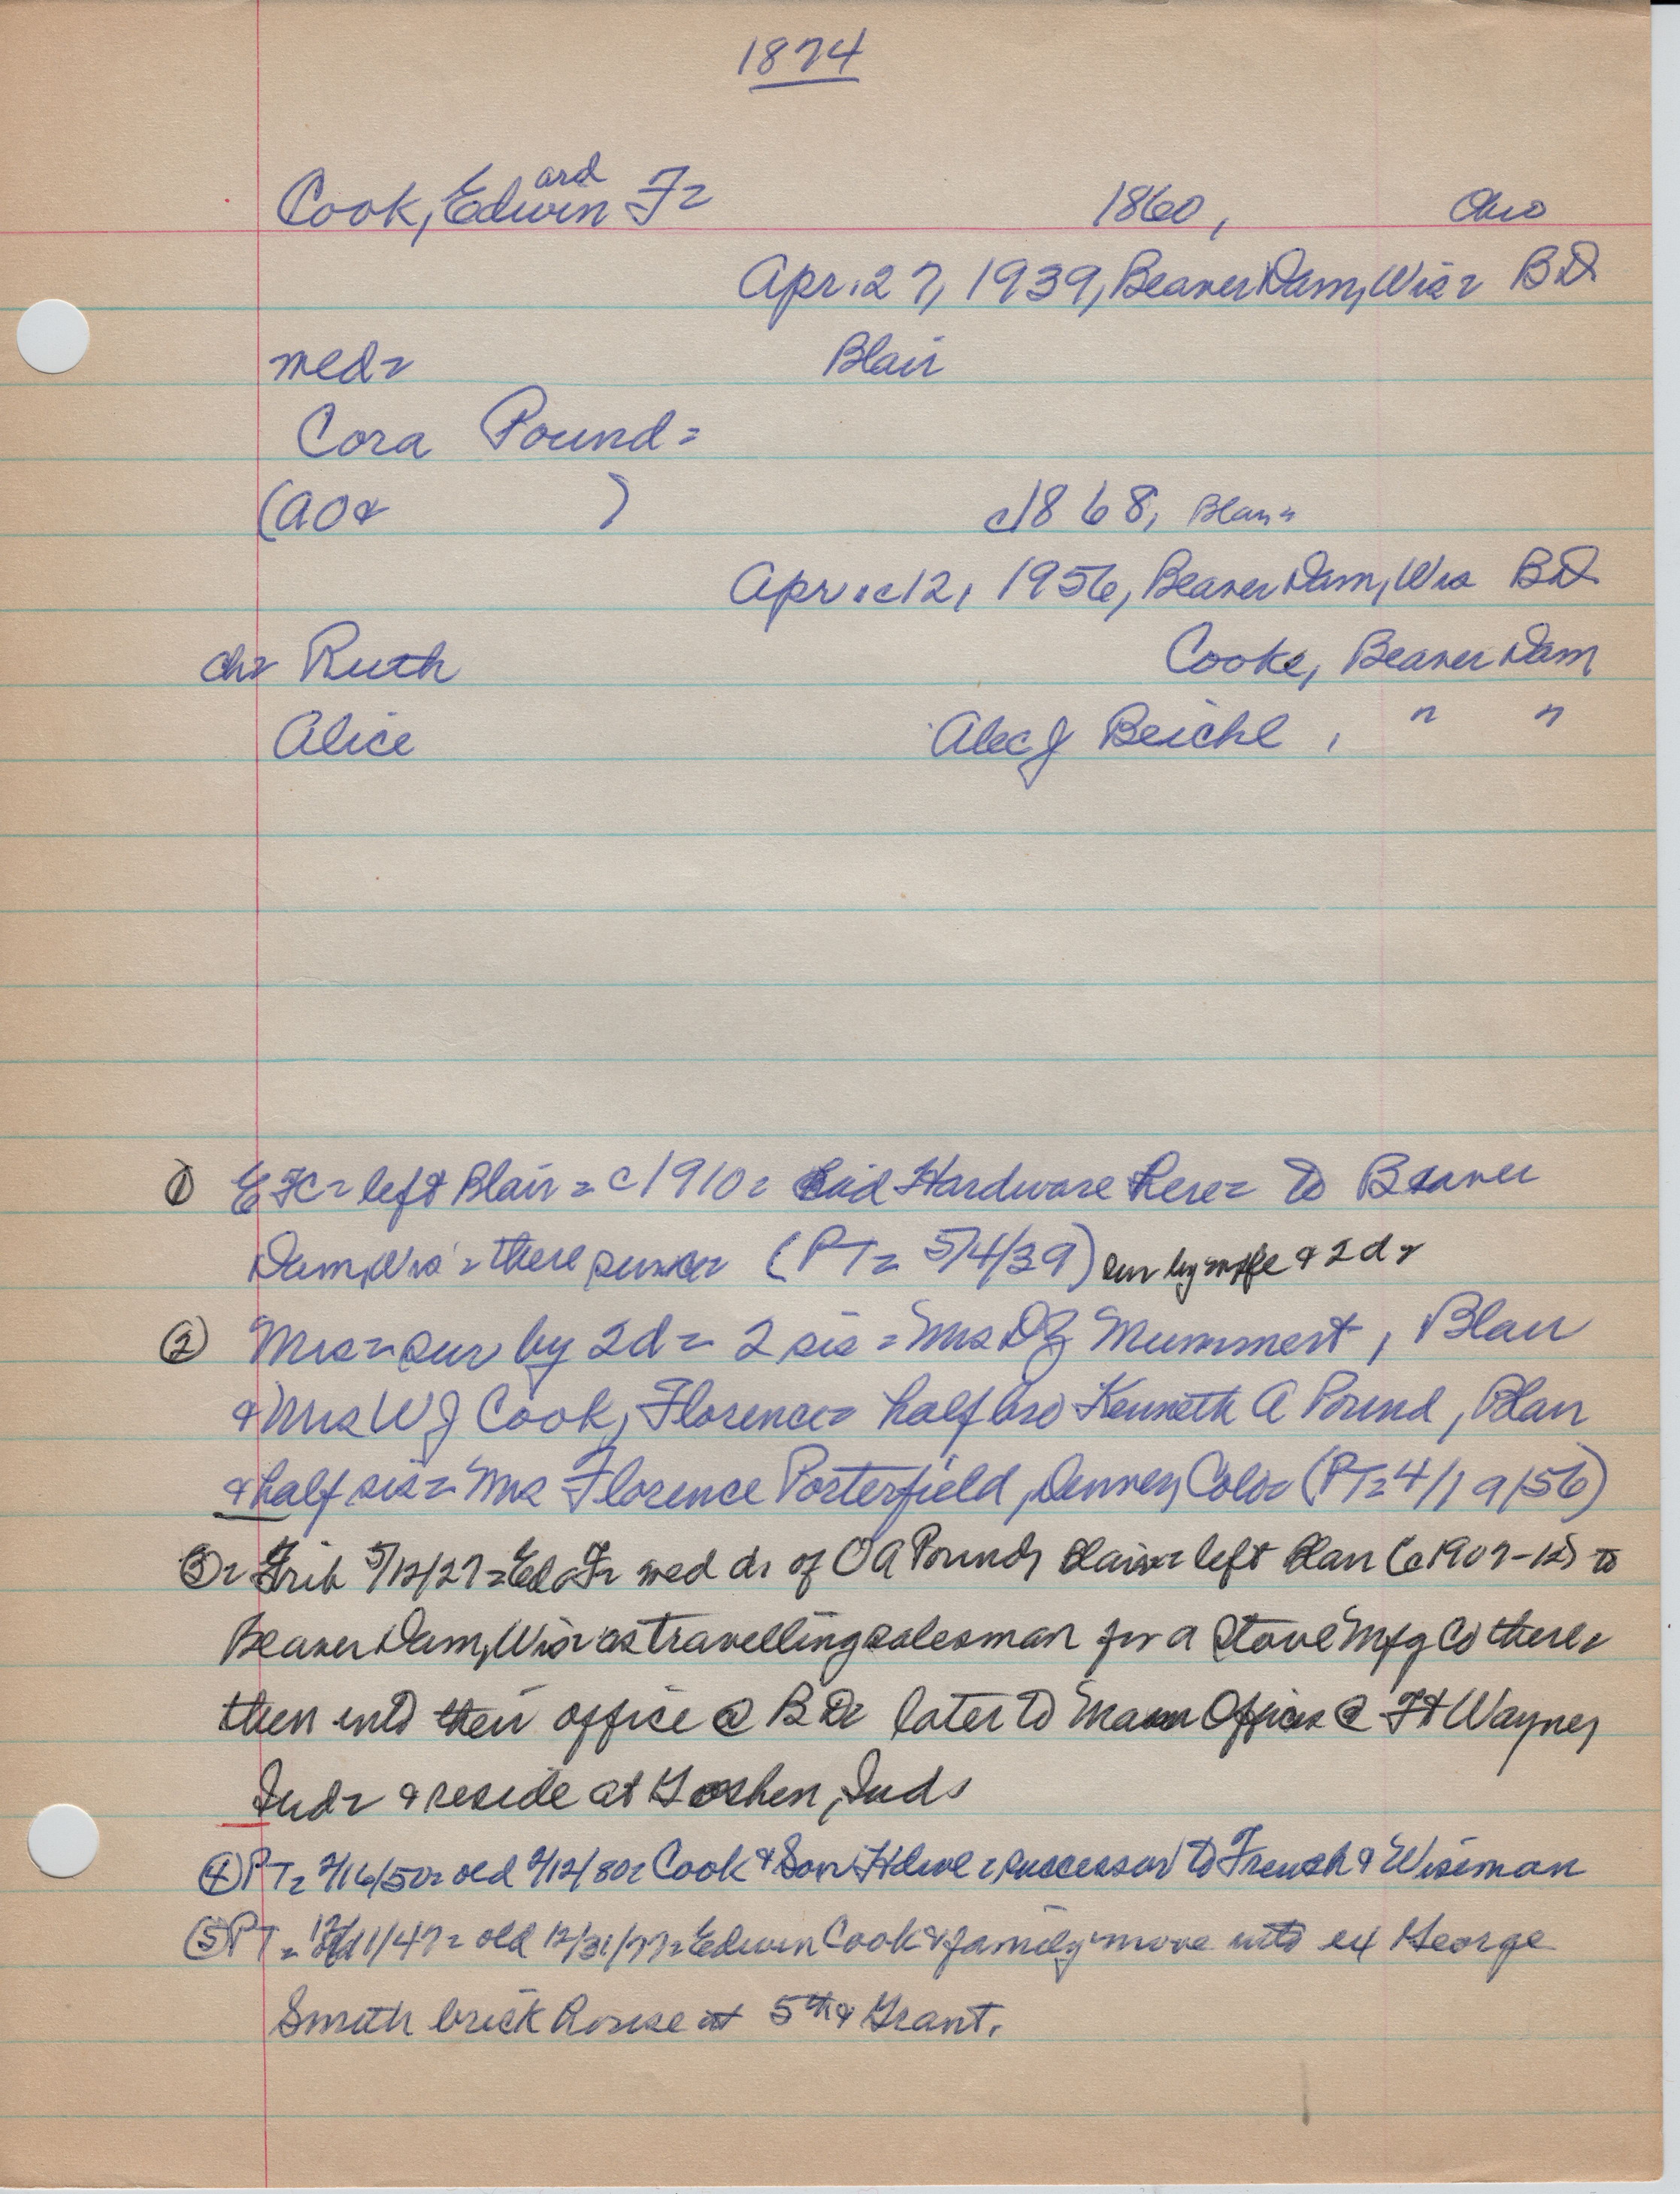 1874
ard
Cook, Edwin F= 1860, Ohio
Apr. 27, 1939, Beaver Dam, Wis= BD
med= Blair
Cora Pound=
(AO& ) c1868, Blair=
Apr. c12, 1956, Beaver Dam, Wis BD
ch= Ruth Cooke, Beaver Dam
Alice Alec J Beichl, " "
① EFC= left Blair= c1910= Hardware here= to Beaver
Dam, Wis= there since= (PT= 5/4/39) sur by wife & 2d=
② Mrs= sur by 2d= 2 sis= Mrs DZ Mummert, Blair
& Mrs W J Cook, Florence= half bro Kenneth A Pound, Blair
& half sis= Mrs Florence Porterfield, Denver, Colo= (PT=4/19/56)
③= Trib 5/12/27= Ed F= med d. of OA Pound, Blair= left Blair (c1907-12) to
Beaver Dam, Wis= as travelling salesman for a Stove Mfg Co there=
then into their office @ BD= later to Main Office @ Ft Wayne,
Ind= & reside at Goshen, Ind=
④ PT= 2/16/50= old 2/12/80= Cook & Son Hdwe= successor to French & Wiseman
⑤ PT= 1/47= old 12/31/77= Edwin Cook & family= move into ex George
Smith brick house at 5th & Grant.